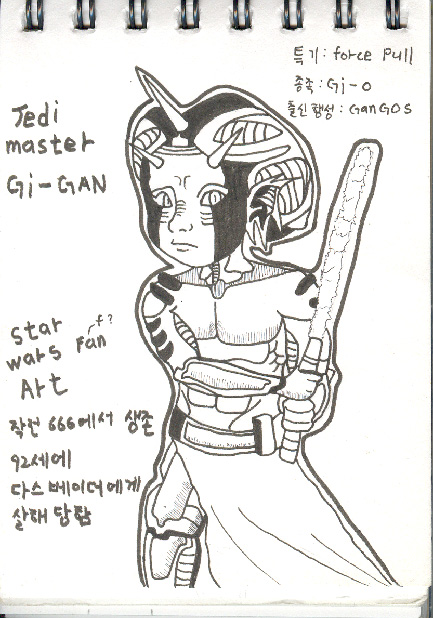 특기: force pull
종족: Gi-o
출신행성: GanGOs
Jedi
master
Gi-GAN
star
wars Fan
f?
Art
작전 666에서 생존
92세에
다스베이더에게
살해당함